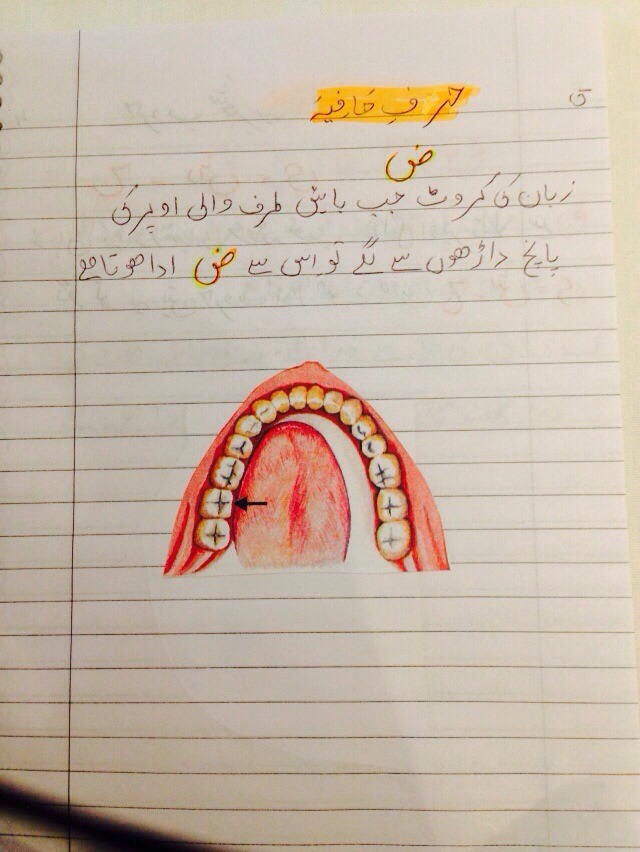 حرفِ حَافِیَہ
ض
زبان کی کروٹ جب بائیں طرف والی اوپر کی
پانچ داڑھوں سے لگے تو اس سے ض ادا ھوتا ھے